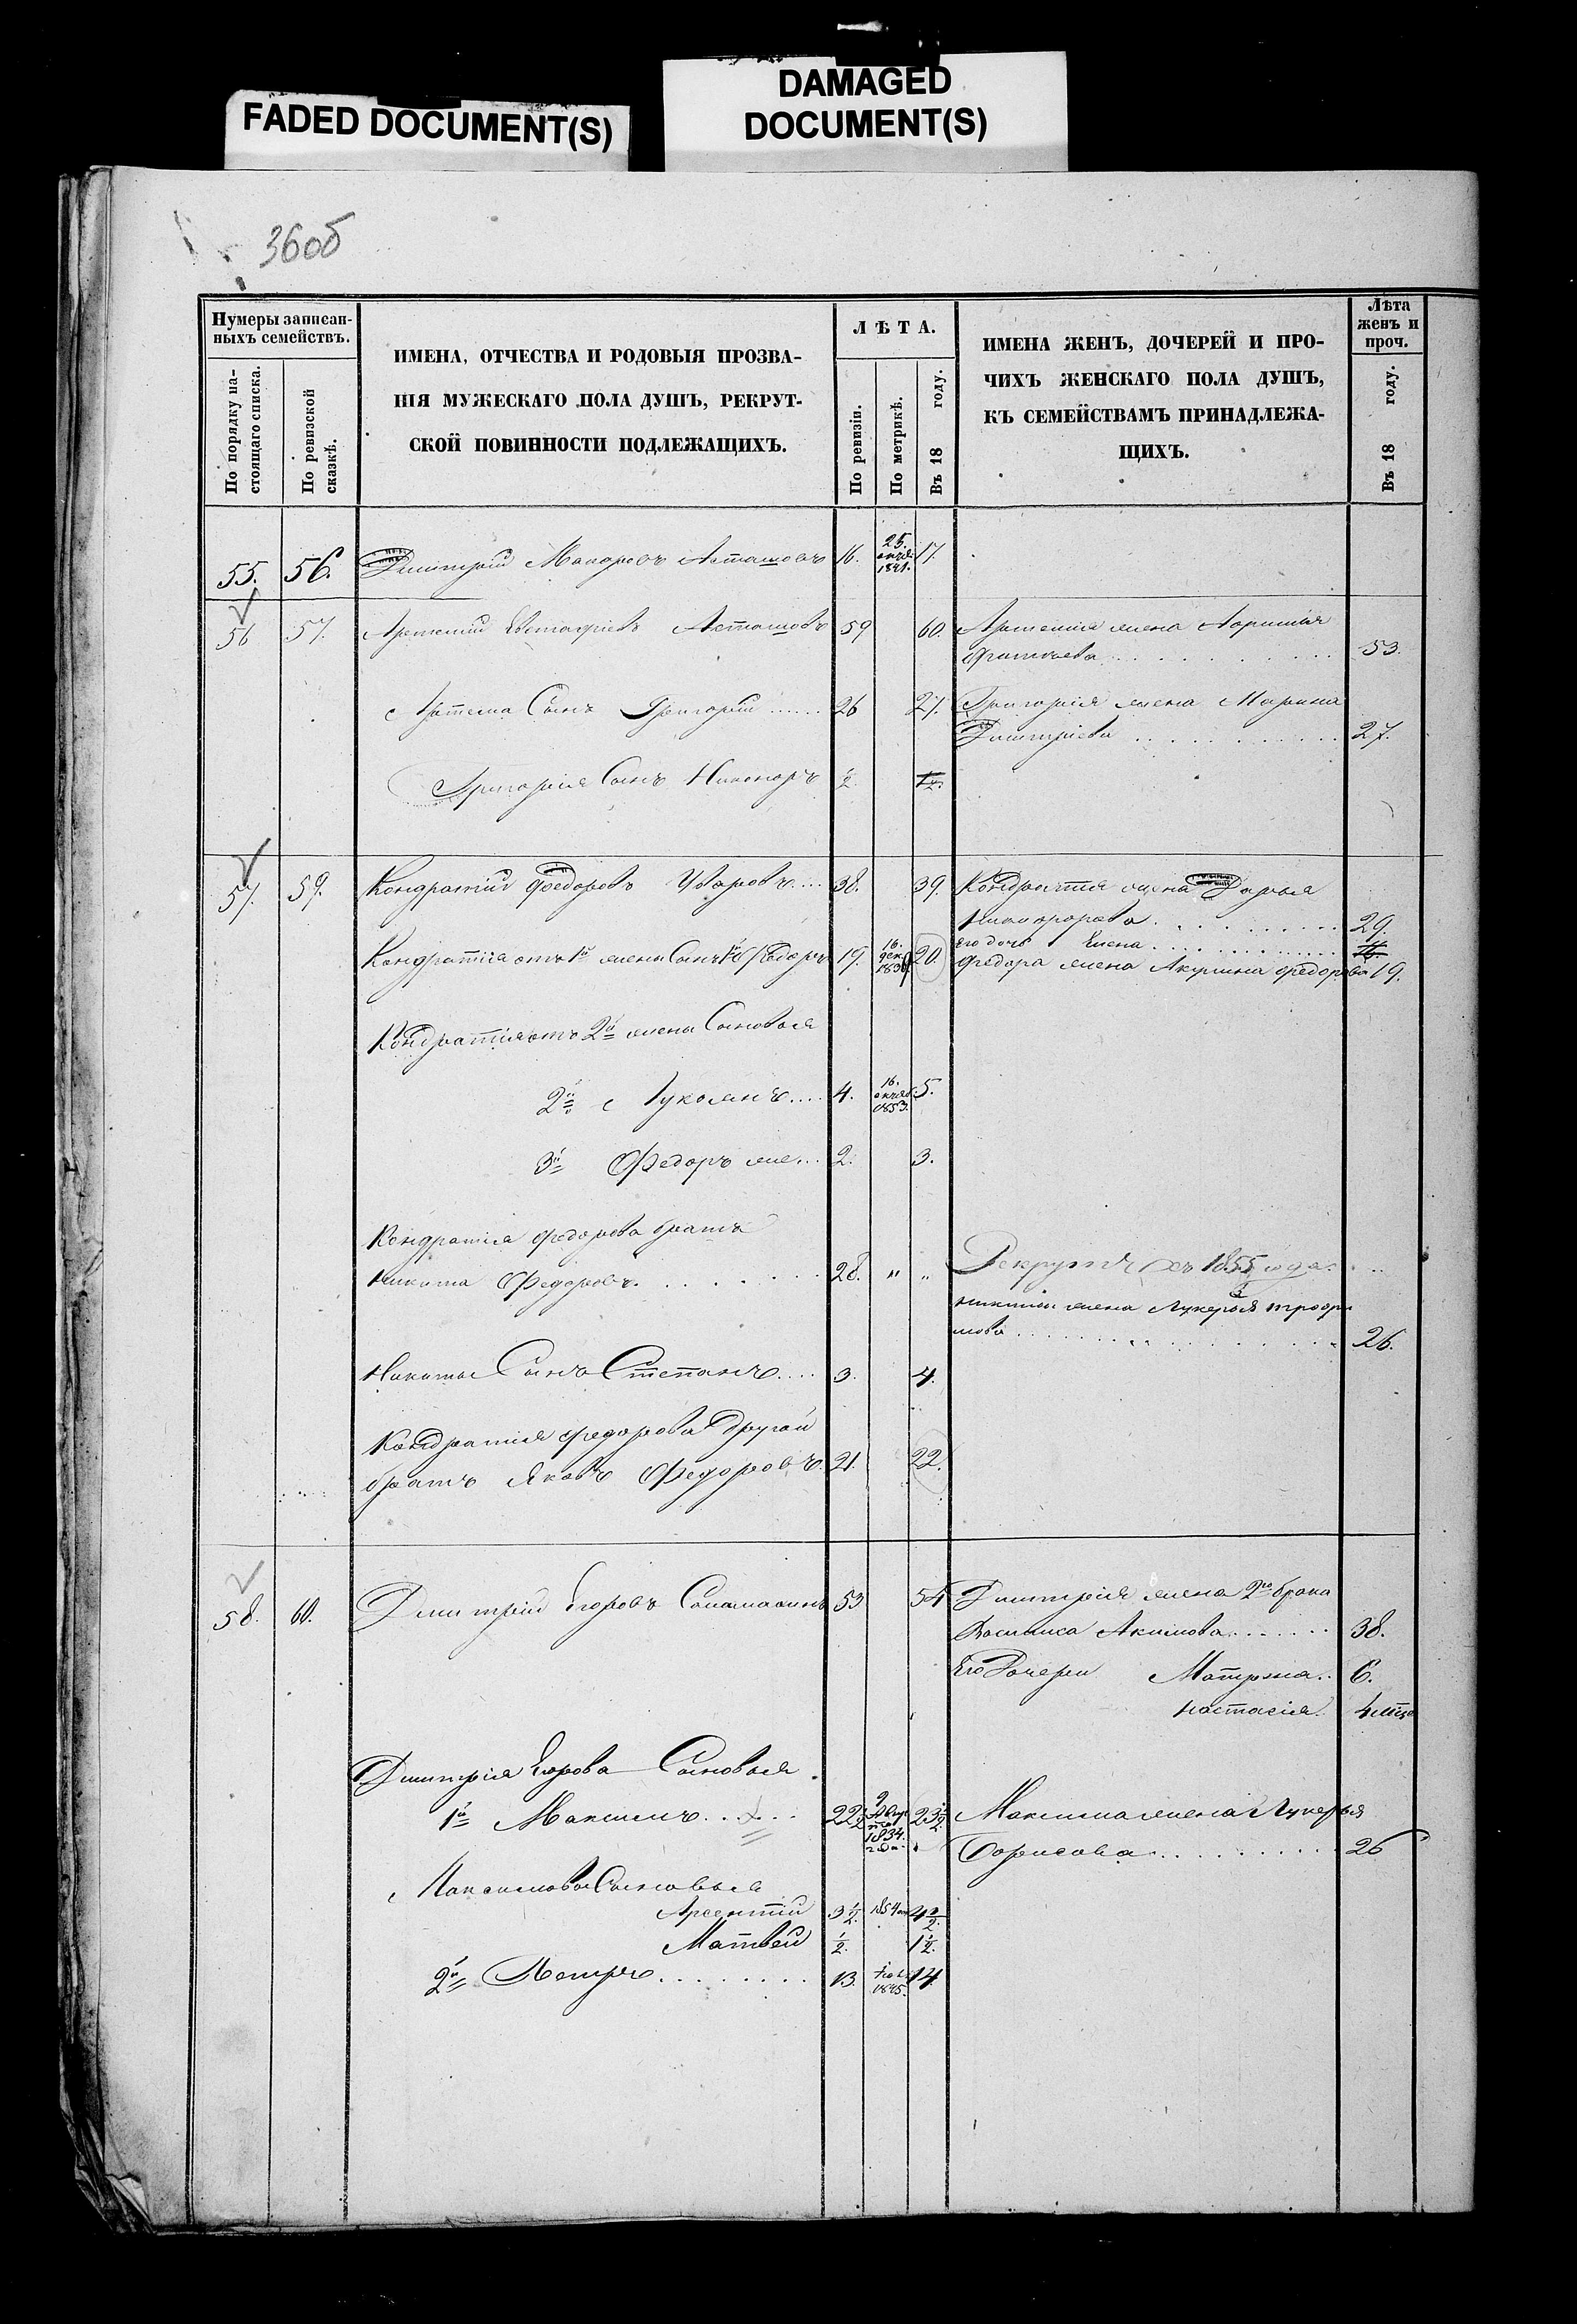 FADED DOCUMENT(S)
DAMAGED
DOCUMENT(S)
36об
Нумеры записан-
ныхъ семействъ.
По порядку на-
стоящаго списка.
По ревизской
сказкѣ.
ИМЕНА, ОТЧЕСТВА И РОДОВЫЯ ПРОЗВА-
НІЯ МУЖЕСКАГО ПОЛА ДУШЪ, РЕКРУТ-
СКОЙ ПОВИННОСТИ ПОДЛЕЖАЩИХЪ.
ЛѢТА.
По ревизіи.
По метрикѣ.
Въ 18 году.
ИМЕНА ЖЕНЪ, ДОЧЕРЕЙ И ПРО-
ЧИХЪ ЖЕНСКАГО ПОЛА ДУШЪ,
КЪ СЕМЕЙСТВАМЪ ПРИНАДЛЕЖА-
ЩИХЪ.
Лѣта
женъ и
проч.
Въ 18 году.
55. 56. Дмитрій Макаровъ Асташовъ 16. 25. октяб. 1841. 17.
56 57. Артемій Евстафіевъ Асташовъ 59 60. Артемія жена
53.
Артема Сынъ Григорій ...... 26 27. Григорія жена Марина
Дмитріева 27.
Григорія Сынъ Никоноръ 1/2 1 1/2.
57. 59. Кондратій Федоровъ Уваровъ.... 38. 39. Кондратія жена Дарья
Никифорова 29.
его дочь Елена
Кондратія отъ 1й жены Сынъ 1й Федоръ 19. 16. дек. 20. Федора жена Акулина Федорова 19.
Кондратія отъ 2й жены Сыновья
2й Лукьянъ.... 4. 16. октяб 1853. 5.
3й Федоръ же... 2. 3.
Кондратія Федорова братъ
Никита Федоровъ. 28. „ „ Рекрутъ съ 1855 года.
Никиты жена Лукерья Трофи
мова 26.
Никиты Сынъ Степанъ.... 3. 4.
Кондратія Федорова Другой
братъ Яковъ Федоровъ. 21. 22.
58. 60. Дмитрій Егоровъ 53 54 Дмитрія жена 2го брака
Василиса Акимова 38.
Его Дочери Матрена.. 6.
Настасія. 4 мѣся
Дмитрія Егорова Сыновья.
1й Максимъ 22 1/2 9 Авгу ста 1834. года. 23 1/2. Максима жена Лукерья
Борисова 26
Максимовы Сыновья
Арсентій 3 1/2. 1854 4 1/2.
Матвей 1/2. 1 1/2.
2й Петръ 13. 1845. 14